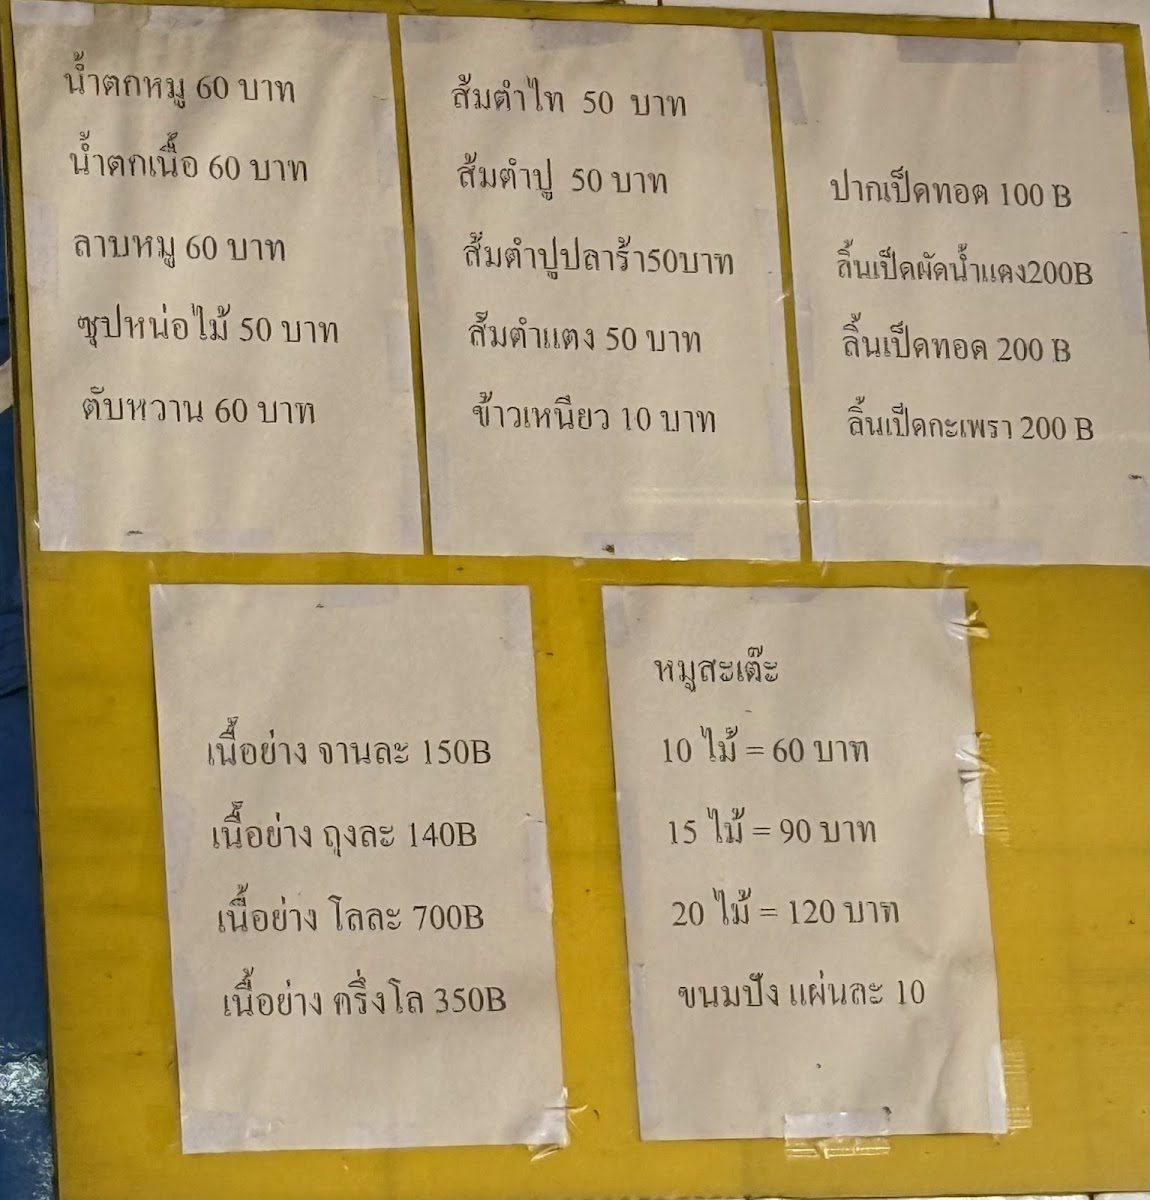 น้ำตกหมู 60 บาท
น้ำตกเนื้อ 60 บาท
ลาบหมู 60 บาท
ซุปหน่อไม้ 50 บาท
ตับหวาน 60 บาท
ส้มตำไท 50 บาท
ส้มตำปู 50 บาท
ส้มตำปูปลาร้า50บาท
ส้มตำแตง 50 บาท
ข้าวเหนียว 10 บาท
ปากเป็ดทอด 100 B
ลิ้นเป็ดผัดน้ำแดง200B
ลิ้นเป็ดทอด 200 B
ลิ้นเป็ดกะเพรา 200 B
เนื้อย่าง จานละ 150B
เนื้อย่าง ถุงละ 140B
เนื้อย่าง โลละ 700B
เนื้อย่าง ครึ่งโล 350B
หมูสะเต๊ะ
10 ไม้ = 60 บาท
15 ไม้ = 90 บาท
20 ไม้ = 120 บาท
ขนมปัง แผ่นละ 10